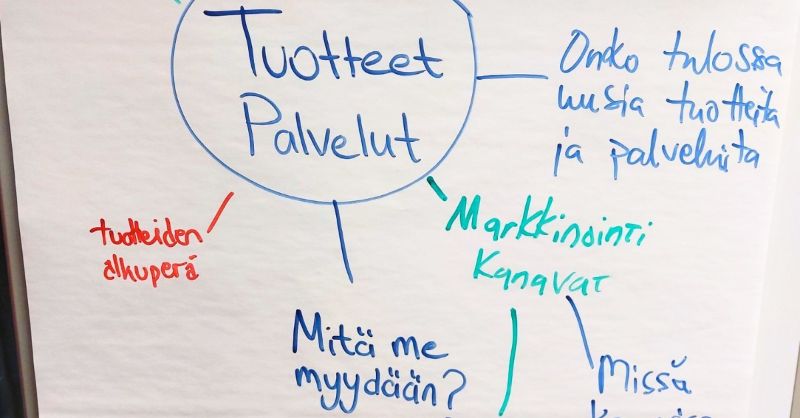 Tuotteet
Palvelut
Onko tulossa
uusia tuotteita
ja palveluita
tuotteiden
alkuperä
Markkinointi
Kanavat
Mitä me
myydään?
Missä